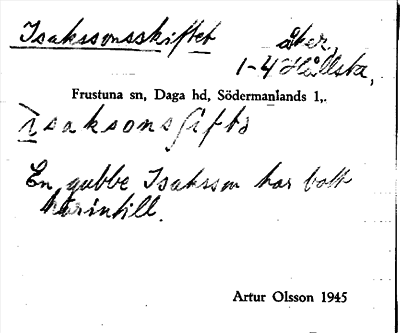 Isakssonsskiftet åker,
1-4 Hållsta,
Frustuna sn, Daga hd, Södermanlands l,.
En gubbe Isaksson har bott
härintill.
Artur Olsson 1945